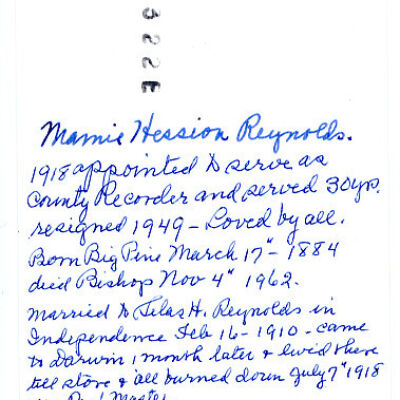 3 2 2 E
Mamie Hession Reynolds.
1918 appointed to serve as
County Recorder and served 30 yrs.
resigned 1949 - Loved by all.
Born Big Pine March 17" - 1884
died Bishop Nov 4" 1962.
married to Silas H. Reynolds in
Independence Feb 16 - 1910 - came
to Darwin 1 month later & lived there
till store & all burned down July 7" 1918